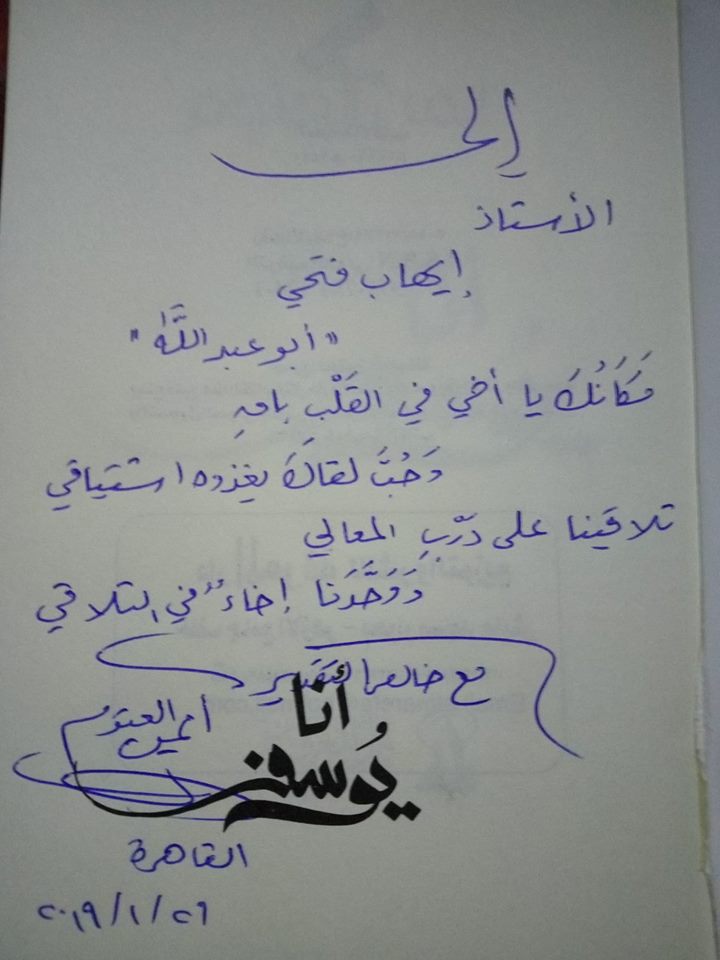 إلى
الأستاذ
إيهاب فتحي
"أبو عبد اللَّه"
مَكَانُكَ يا أخي في القَلْبِ باقٍ
وَحُبُّ لقاكَ يغذوه اشتياقي
تلاقينا على دَرْبِ المعالي
وَوَحَّدَنا إخاءٌ في التلاقي
مع خالص التقدير
أيمن العتوم
أنا
يُوسف
القاهرة
٢٠١٩/١/٢٦